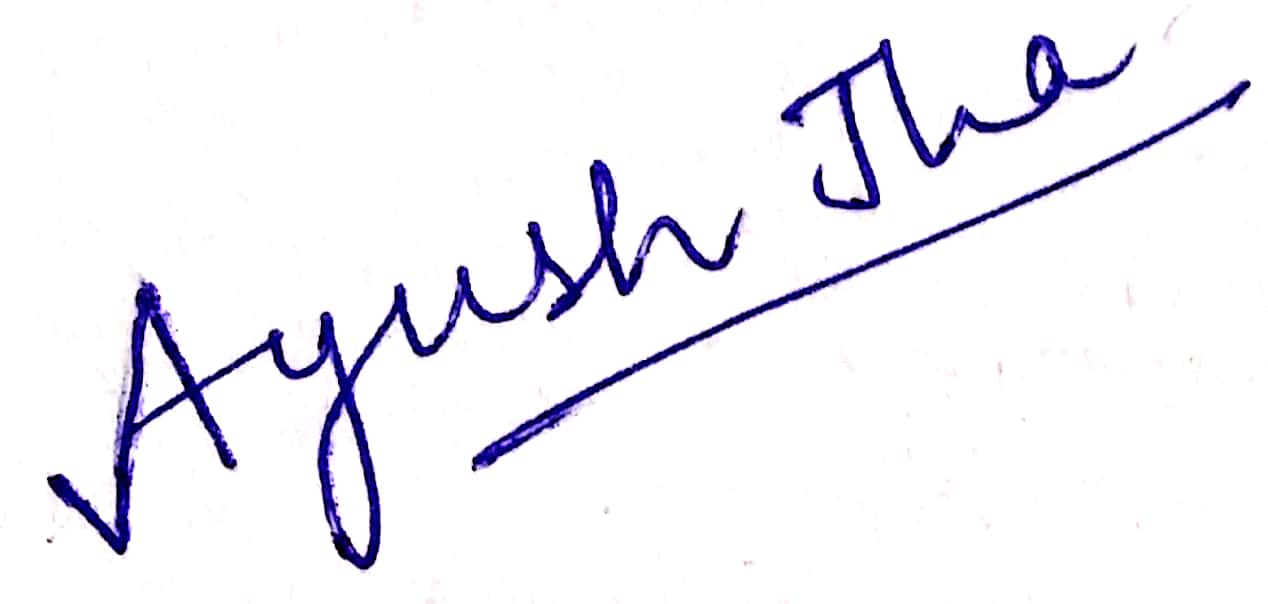 Ayush Jha